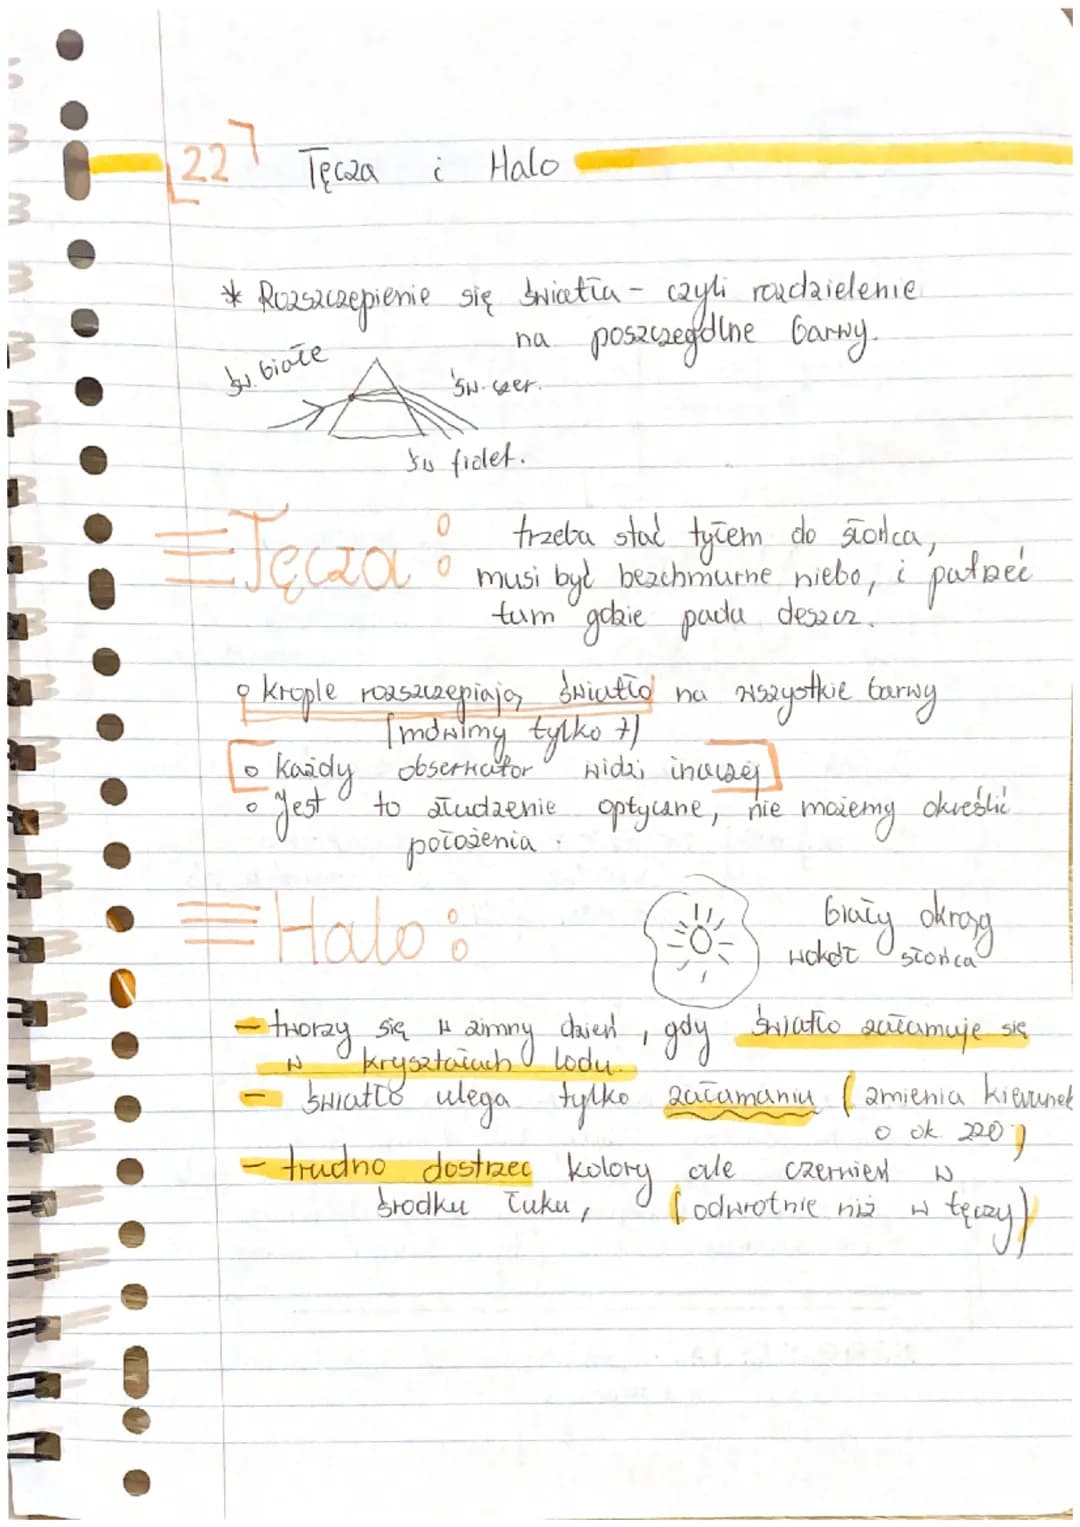 22 Tęcza i Halo
* Rozszczepienie się światła - czyli rozdzielenie
na poszczególne barwy.
św. białe
św. czer.
św fiolet.
Tęcza:
trzeba stać tyłem do słońca,
musi być bezchmurne niebo, i patrzeć
tam gdzie pada deszcz.
o krople rozszczepiają światło na wszystkie barwy
(mówimy tylko 7)
o każdy obserwator widzi inaczej
o Jest to złudzenie optyczne, nie możemy określić
położenia.
Halo:
biały okrąg
wokół słońca
- tworzy się w zimny dzień, gdy światło załamuje się
w kryształach lodu.
- światło ulega tylko załamaniu (zmienia kierunek
o ok. 220)
- trudno dostrzec kolory ale czerwień w
środku łuku, (odwrotnie niż w tęczy)